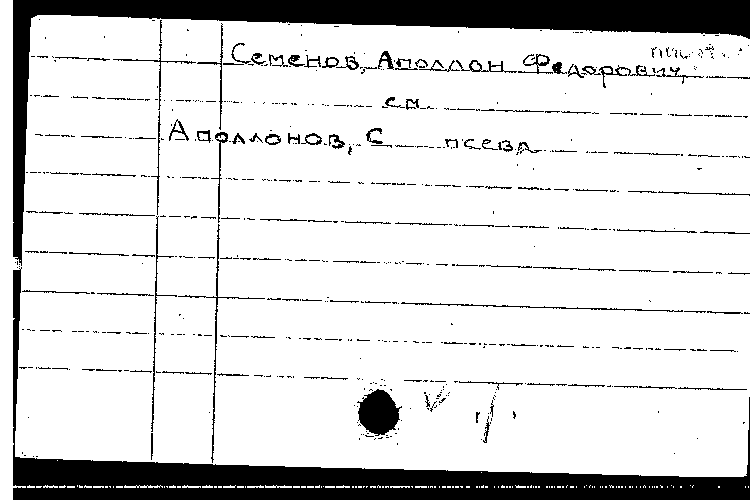 Семенов, Аполлон Федорович,
см.
Аполлонов, С псевд